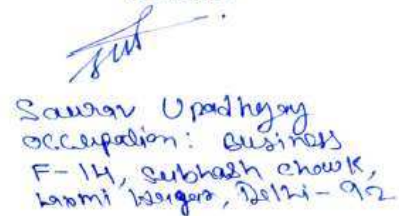 Saurav Upadhyay
occupation: Business
F-14, Subhash chowk,
Laxmi Nagar, Delhi-92